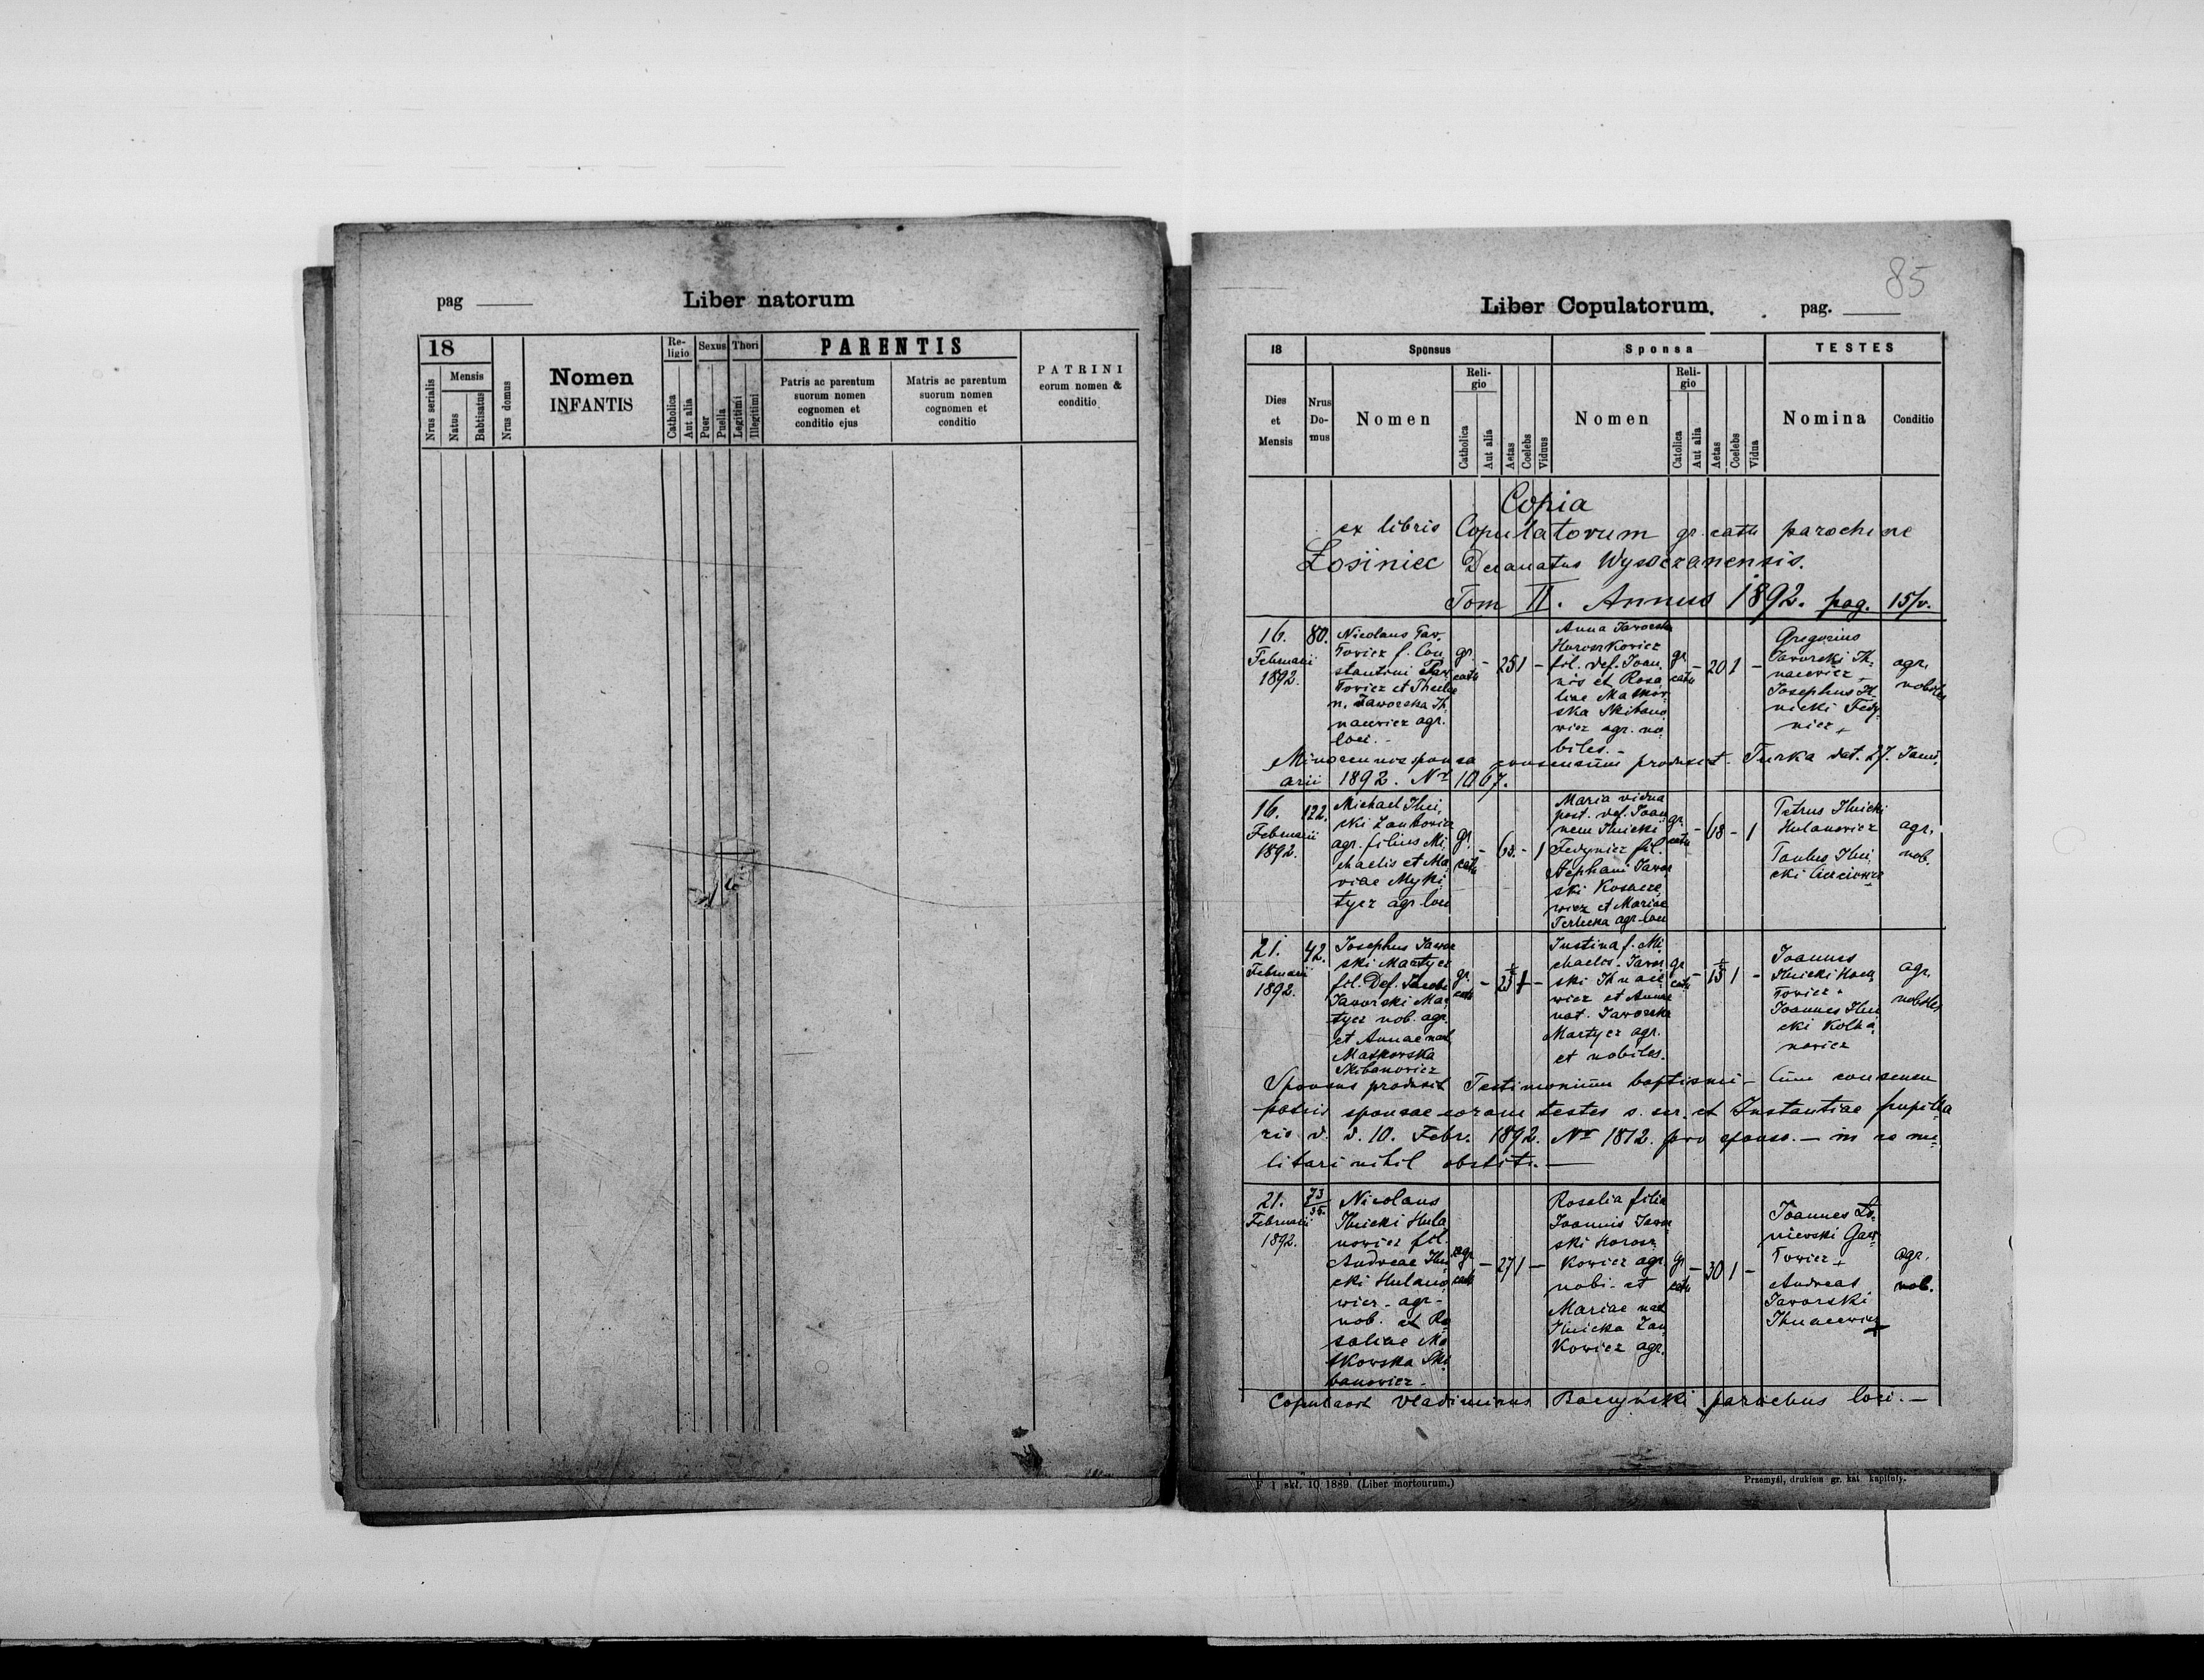 pag
Liber natorum
18
Nrus serialis
Mensis
Natus
Babtisatus
Nrus domus
Nomen
INFANTIS
Re-
ligio
Catholica
Aut alia
Sexus
Puer
Puella
Thori
Legitimi
Illegitimi
PARENTIS
Patris ac parentum
suorum nomen
cognomen et
conditio ejus
Matris ac parentum
suorum nomen
cognomen et
conditio
PATRINI
eorum nomen &
conditio
85
Liber Copulatorum.
pag.
18
Dies
et
Mensis
Nrus
Do-
mus
Sponsus
Nomen
Reli-
gio
Catholica
Aut alia
Aetas
Coelebs
Viduus
Sponsa
Nomen
Reli-
gio
Catolica
Aut alia
Aetas
Coelebs
Vidua
TESTES
Nomina
Conditio
Copia
ex libris Copulatorum gr. cath parochiae
Łosiniec Decanatus Wysoczanensis.
Tom II. Annus 1892. pag. 15/v.
16.
Februarii
1892.
80.
Nicolaus
f. Con
stantini
et Theclae
n. Jaworska Ih
nacewicz agr.
loci.-
gr.
cath
-
25
1
-
Anna Jaworska
Horoszkowicz
fil. def. Joan
nis et Rosa
liae Matkow
ska Skibano
wicz agr. no
biles.-
gr
cath
-
20
1
-
Gregorius
Jaworski Ih-
nacewicz +
Josephus Il-
nicki Fedy-
nicz +
agr.
nobiles
Minorennis sponsa consensum produxit. Turka dat. 27. Janu-
arii 1892. Nr 1067.
16.
Februarii
1892.
122.
Michael Ilni
cki Zankowicz
agr. filius Mi
chaelis et Ma
riae Myki
tycz agr. loci
gr.
cath
-
63.
-
1
Maria vidua
post. def. Joan
nem Ilnicki
Fedynicz fil.
Stephani Jawor
ski
wicz et Mariae
Terlecka agr. loci
gr.
cath
-
68
-
1
Petrus Ilnicki
Hulanowicz
Paulus Ilni
cki
agr.
nob.
21.
Februarii
1892.
42.
Josephus Jawor
ski Martycz
fil. Def. Jacobi
Jaworski Mar
tycz nob. agr.
et Annae nat.
Matkowska
Skibanowicz
gr.
cath
-
1
-
Justina f. Mi
chaelis Jawor
ski Ihnace
wicz et Annae
nat. Jaworska
Martycz agr.
et nobiles.
gr
cath
-
1
-
Joannes
Ilnicki
Joannes Ilni
cki
nowicz
agr.
nobiles
Sponsus produxit Testimonium baptismi - Cum consensu
patris sponsae coram testes s. scr. et Instantiae pupilla
ris d. d. 10. Febr. 1892. Nr 1812. pro sponso. - in re mi-
litari nihil obstit. -
21.
Februarii
1892.
73
35.
Nicolaus
Ilnicki Hula
nowicz fil.
Andreae Ilni
cki Hulano
wicz - agr -
nob. et Ro
saliae Ma
tkowska Ski
banowicz -
gr
cath
-
27
1
-
Rosalia filia
Joannis Jawor
ski Horosz
kowicz agr.
nobi. et
Mariae nat
Ilnicka Zan
kowicz agr.
gr
cath
-
30
1
-
Joannes Ło-
niewski
+
Andreas
Jaworski
Ihnacewicz +
agr.
nob.
Copulavit Vladimirus Baczyński parochus loci. -
F I skł. 10. 1889. (Liber mortourum.)
Przemyśl, drukiem gr. kat kapituły.